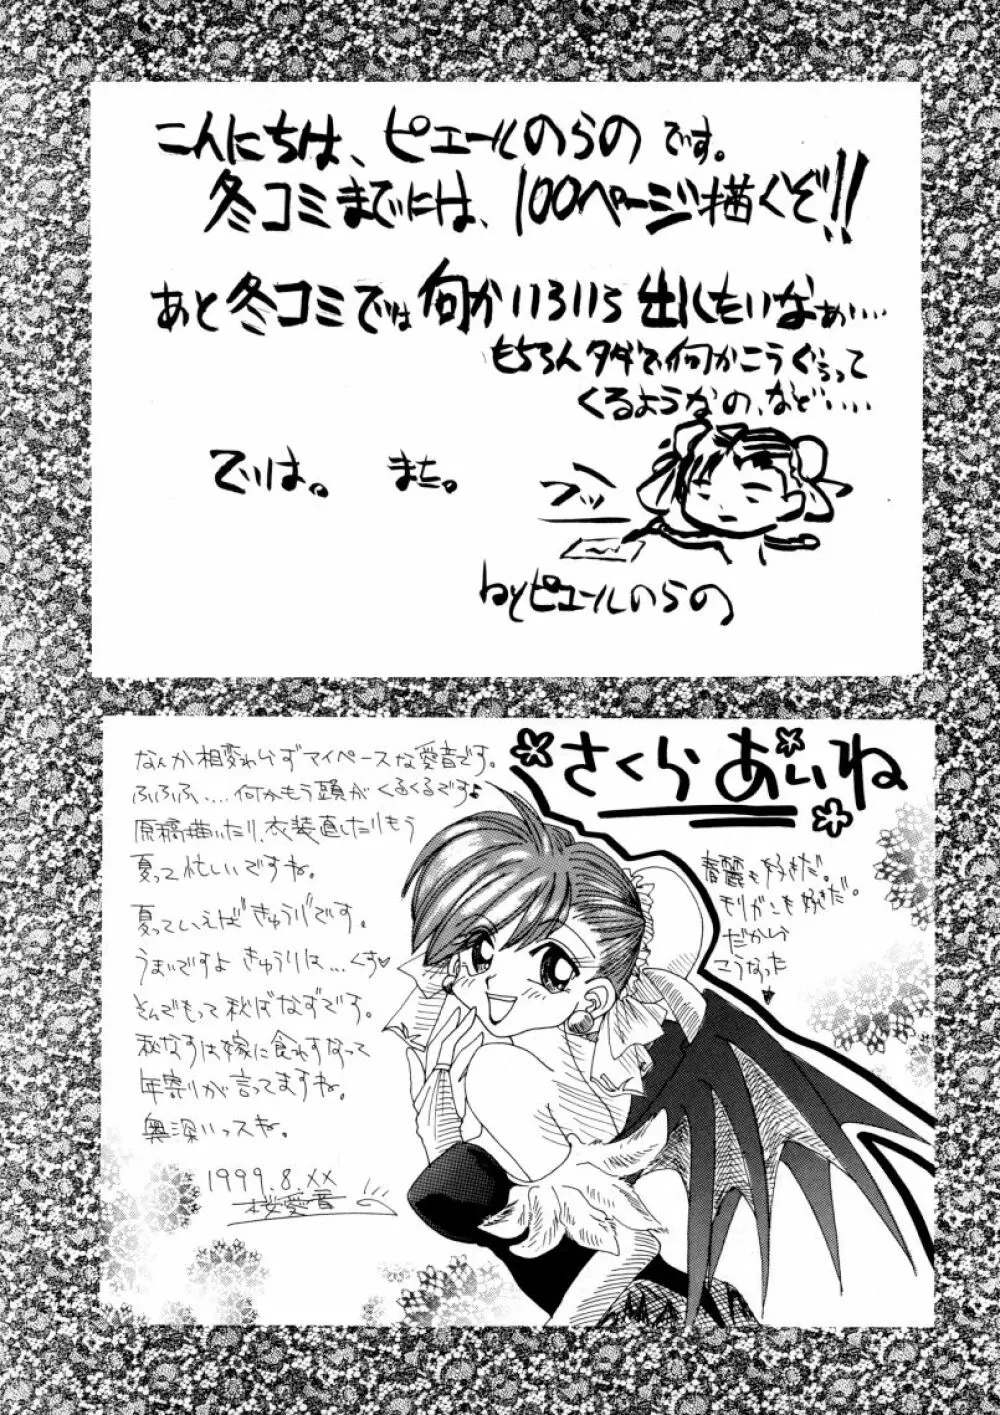 こんにちは、ピエールのらのです。
冬コミまでには、100ページ描くぞ!!
あと冬コミでは何かいろいろ出したいなぁ…
もちろんタダで何かこうぐぅって
くるようなの、など…
では。 また。
フッ
ピエールのらの
さくら あいね
なんか相変わらずマイペースな愛音です。
ふふふ…何かもう頭がくるくるです♪
原稿描いたり、衣装直したりもう
夏って忙しいですね。
夏っていえばきゅうりです。
うまいですよ きゅうりは…くす♡
そんでもって秋はなすです。
秋なすは嫁に食わすなって
年寄りが言ってますね。
奥深いっスね。
1999.8.XX
桜愛音
春麗も好きだ。
モリガンも好きだ。
だから
こうなった